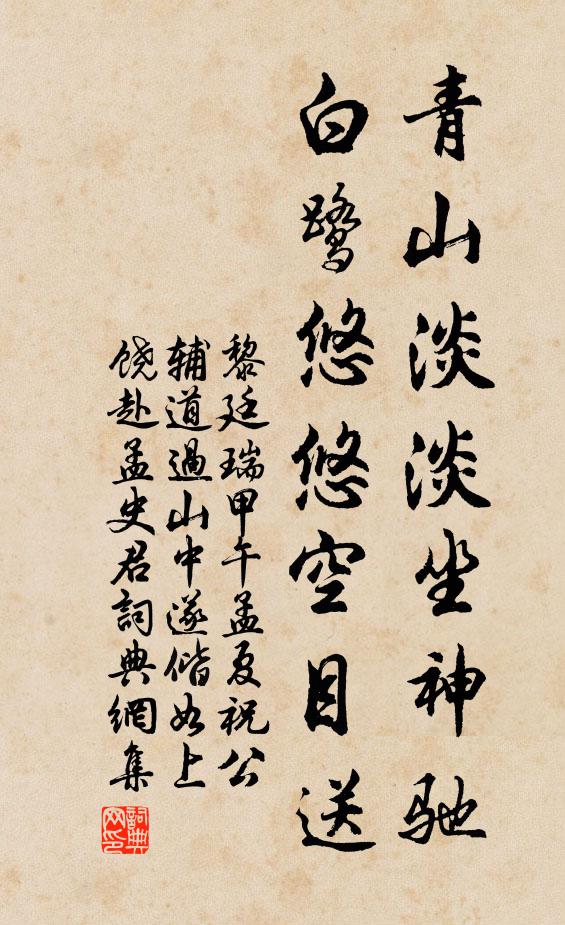 青山淡淡坐神驰
白鹭悠悠空目送
黎廷瑞甲午孟夏祝公
辅道過山中遂偕如上
饶赴孟史君詞典網集
詞典网印